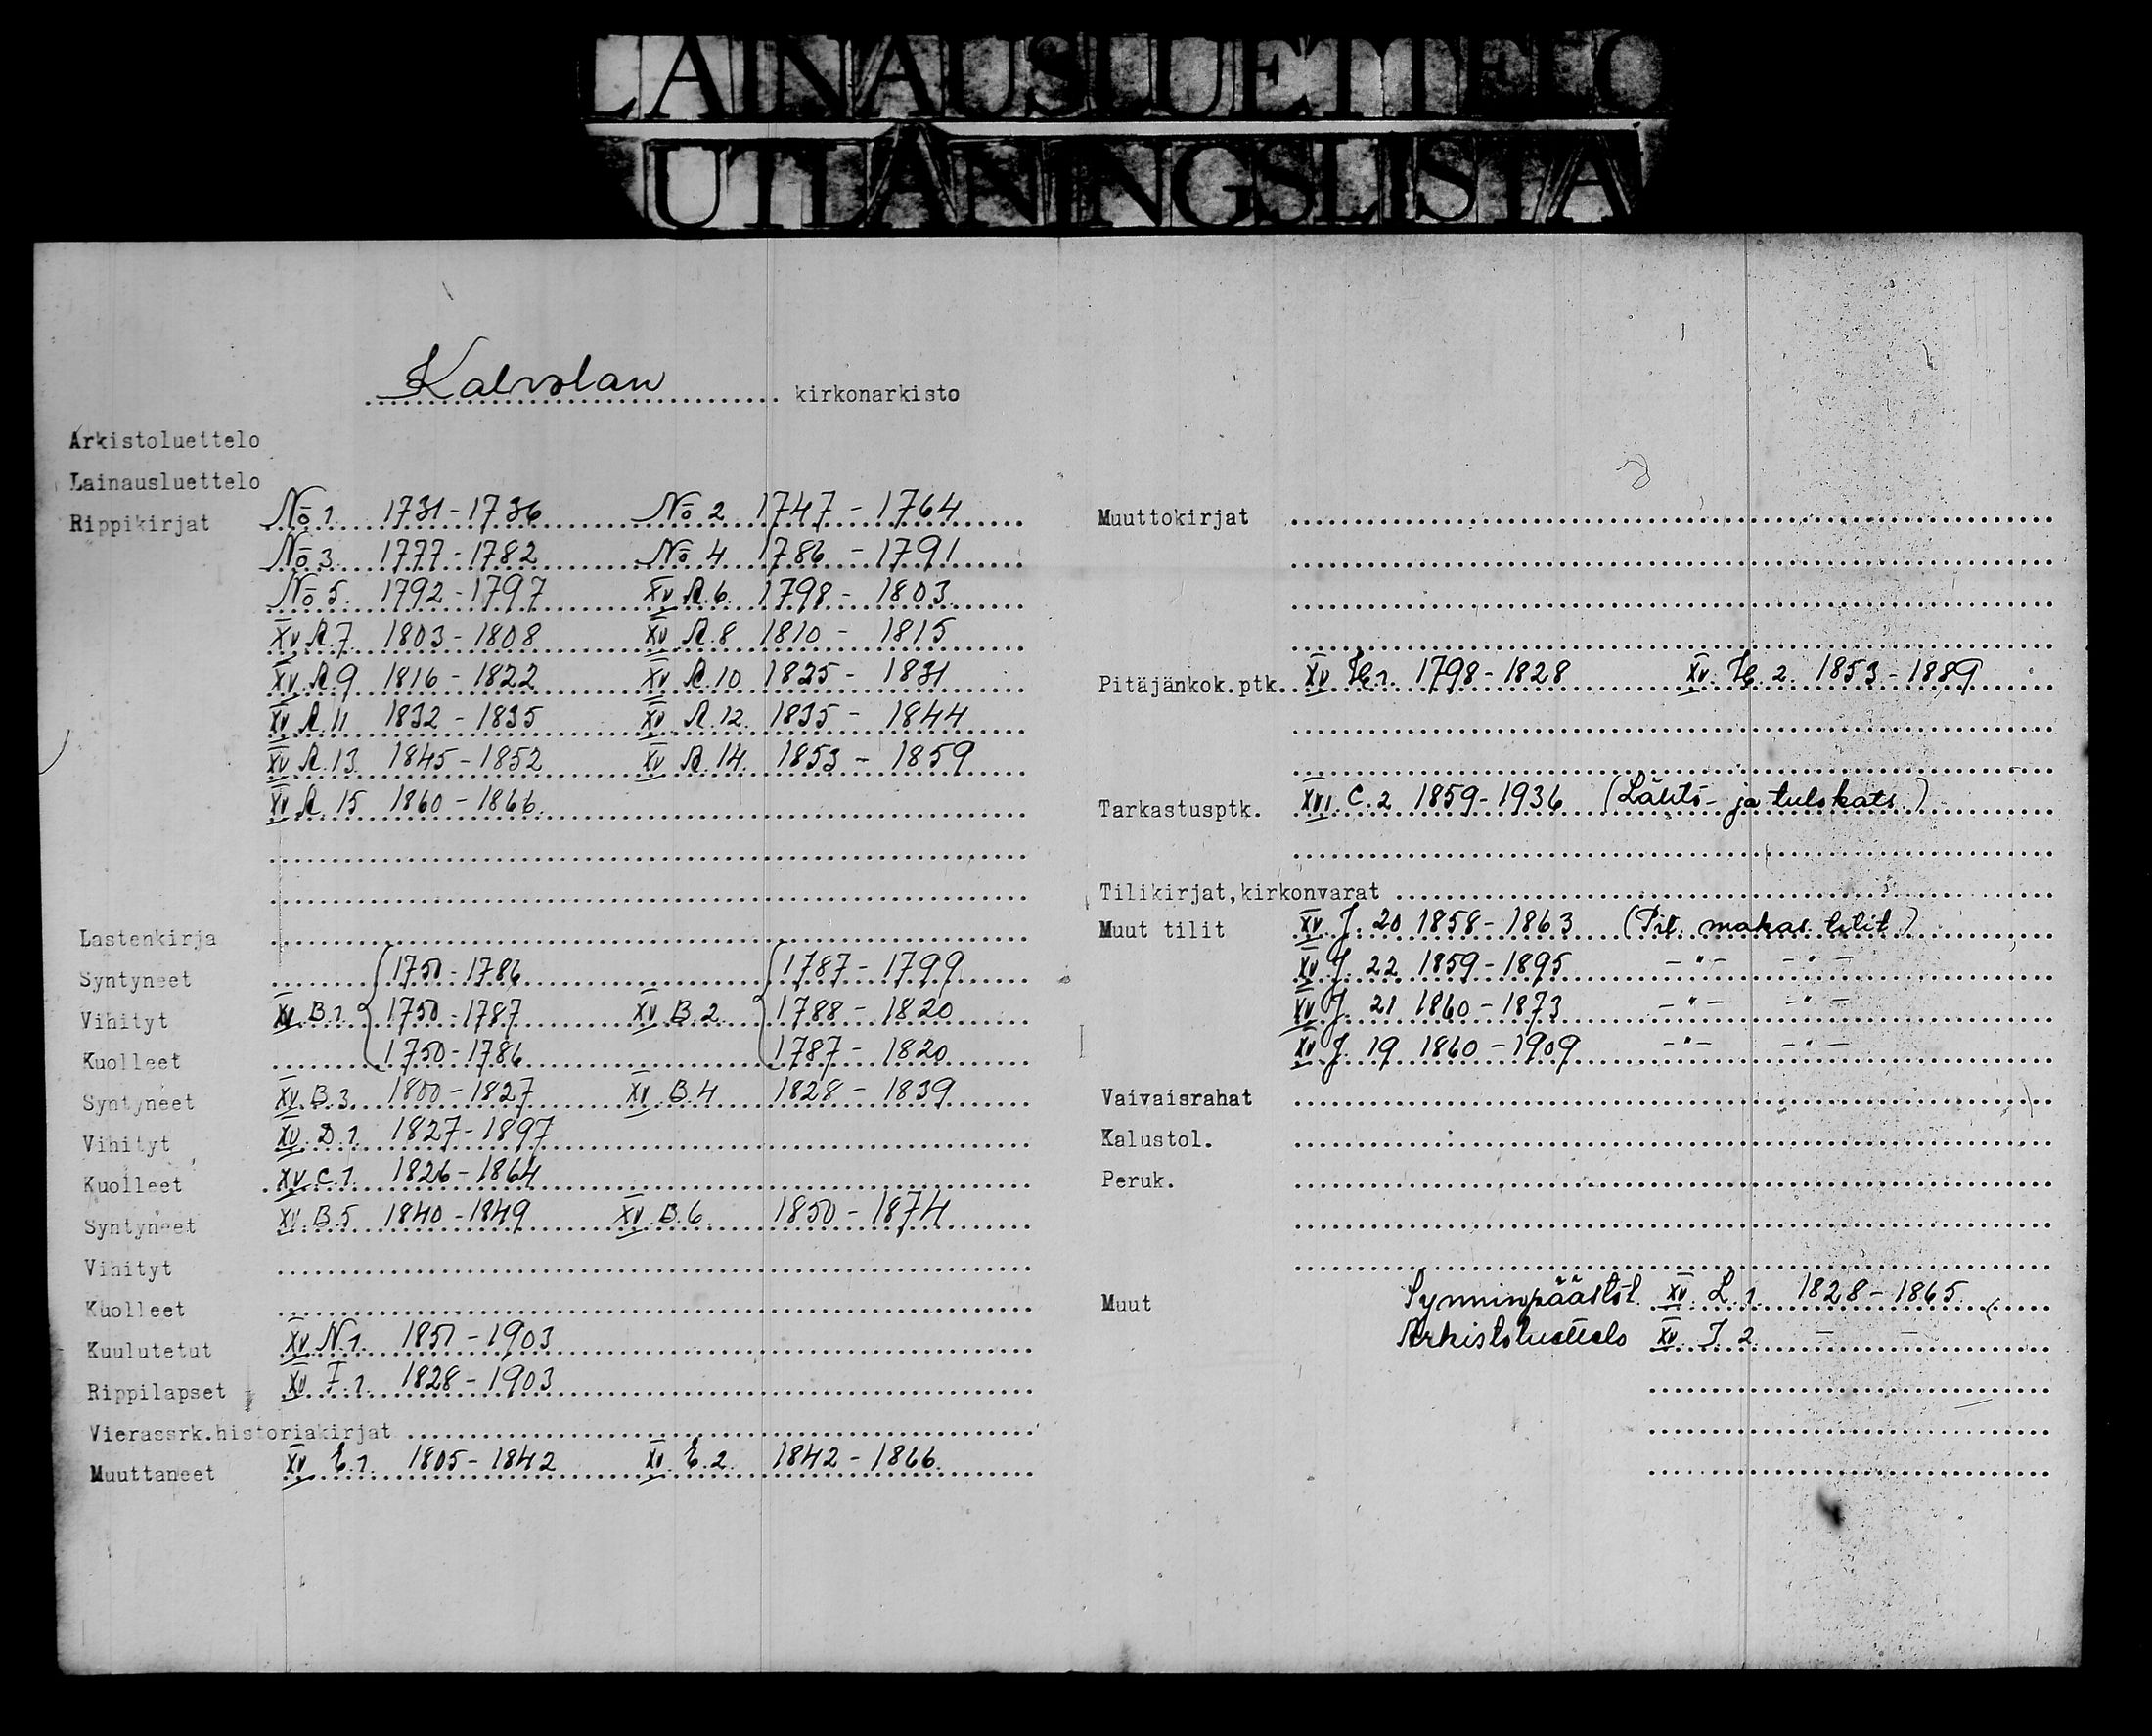 LAINAUSLUETTELO
UTLÅNINGSLISTA
Kalvolan kirkonarkisto
Arkistoluettelo
Lainausluettelo
Rippikirjat No 1. 1731-1736 No 2 1747 - 1764
No 3. 1777-1782 No 4 1786 - 1791
No 5. 1792-1797 XV A.6. 1798 - 1803.
XV A.7. 1803-1808 XV A.8 1810 - 1815
XV A.9 1816 - 1822 XV A.10 1825 - 1831
XV A.11 1832 - 1835 XV A.12. 1835 - 1844
XV A.13. 1845-1852 XV A.14. 1853 - 1859
XV A.15 1860-1866.
Lastenkirja
Syntyneet 1750-1786 1787-1799
Vihityt XV B.1. 1750-1787 XV B.2. 1788 - 1820
Kuolleet 1750-1786 1787 - 1820
Syntyneet XV B.3. 1800-1827 XV B.4 1828 - 1839
Vihityt XV D.1. 1827-1897
Kuolleet XV C.1. 1826-1864
Syntyneet XV B.5 1840-1849 XV B.6. 1850-1874
Vihityt
Kuolleet
Kuulutetut XV N.1. 1851-1903
Rippilapset XV F.1. 1828-1903
Vierassrk.historiakirjat
Muuttaneet XV E.1. 1805-1842 XV E.2. 1842-1866.
Muuttokirjat
Pitäjänkok.ptk. XV H.1. 1798-1828 XV. H. 2. 1853-1889
Tarkastusptk. XVI. C.2 1859-1936 (Lähtö- ja tulokats.)
Tilikirjat,kirkonvarat
Muut tilit XV J. 20 1858-1863 (Pit. makas. tilit)
XV J. 22 1859-1895 -"- -"-
XV J. 21 1860-1873 -"- -"-
XV J. 19 1860-1909 -"- -"-
Vaivaisrahat
Kalustol.
Peruk.
Muut Synninpäästöt. XV. L.1. 1828-1865.
Arkistoluettelo XV. I.2. - -